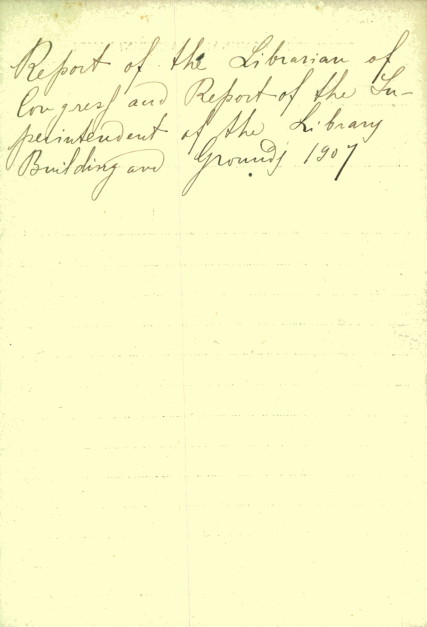 Report of the Librarian of
Congress and Report of the Su-
perintendent of the Library
Building and Grounds 1907